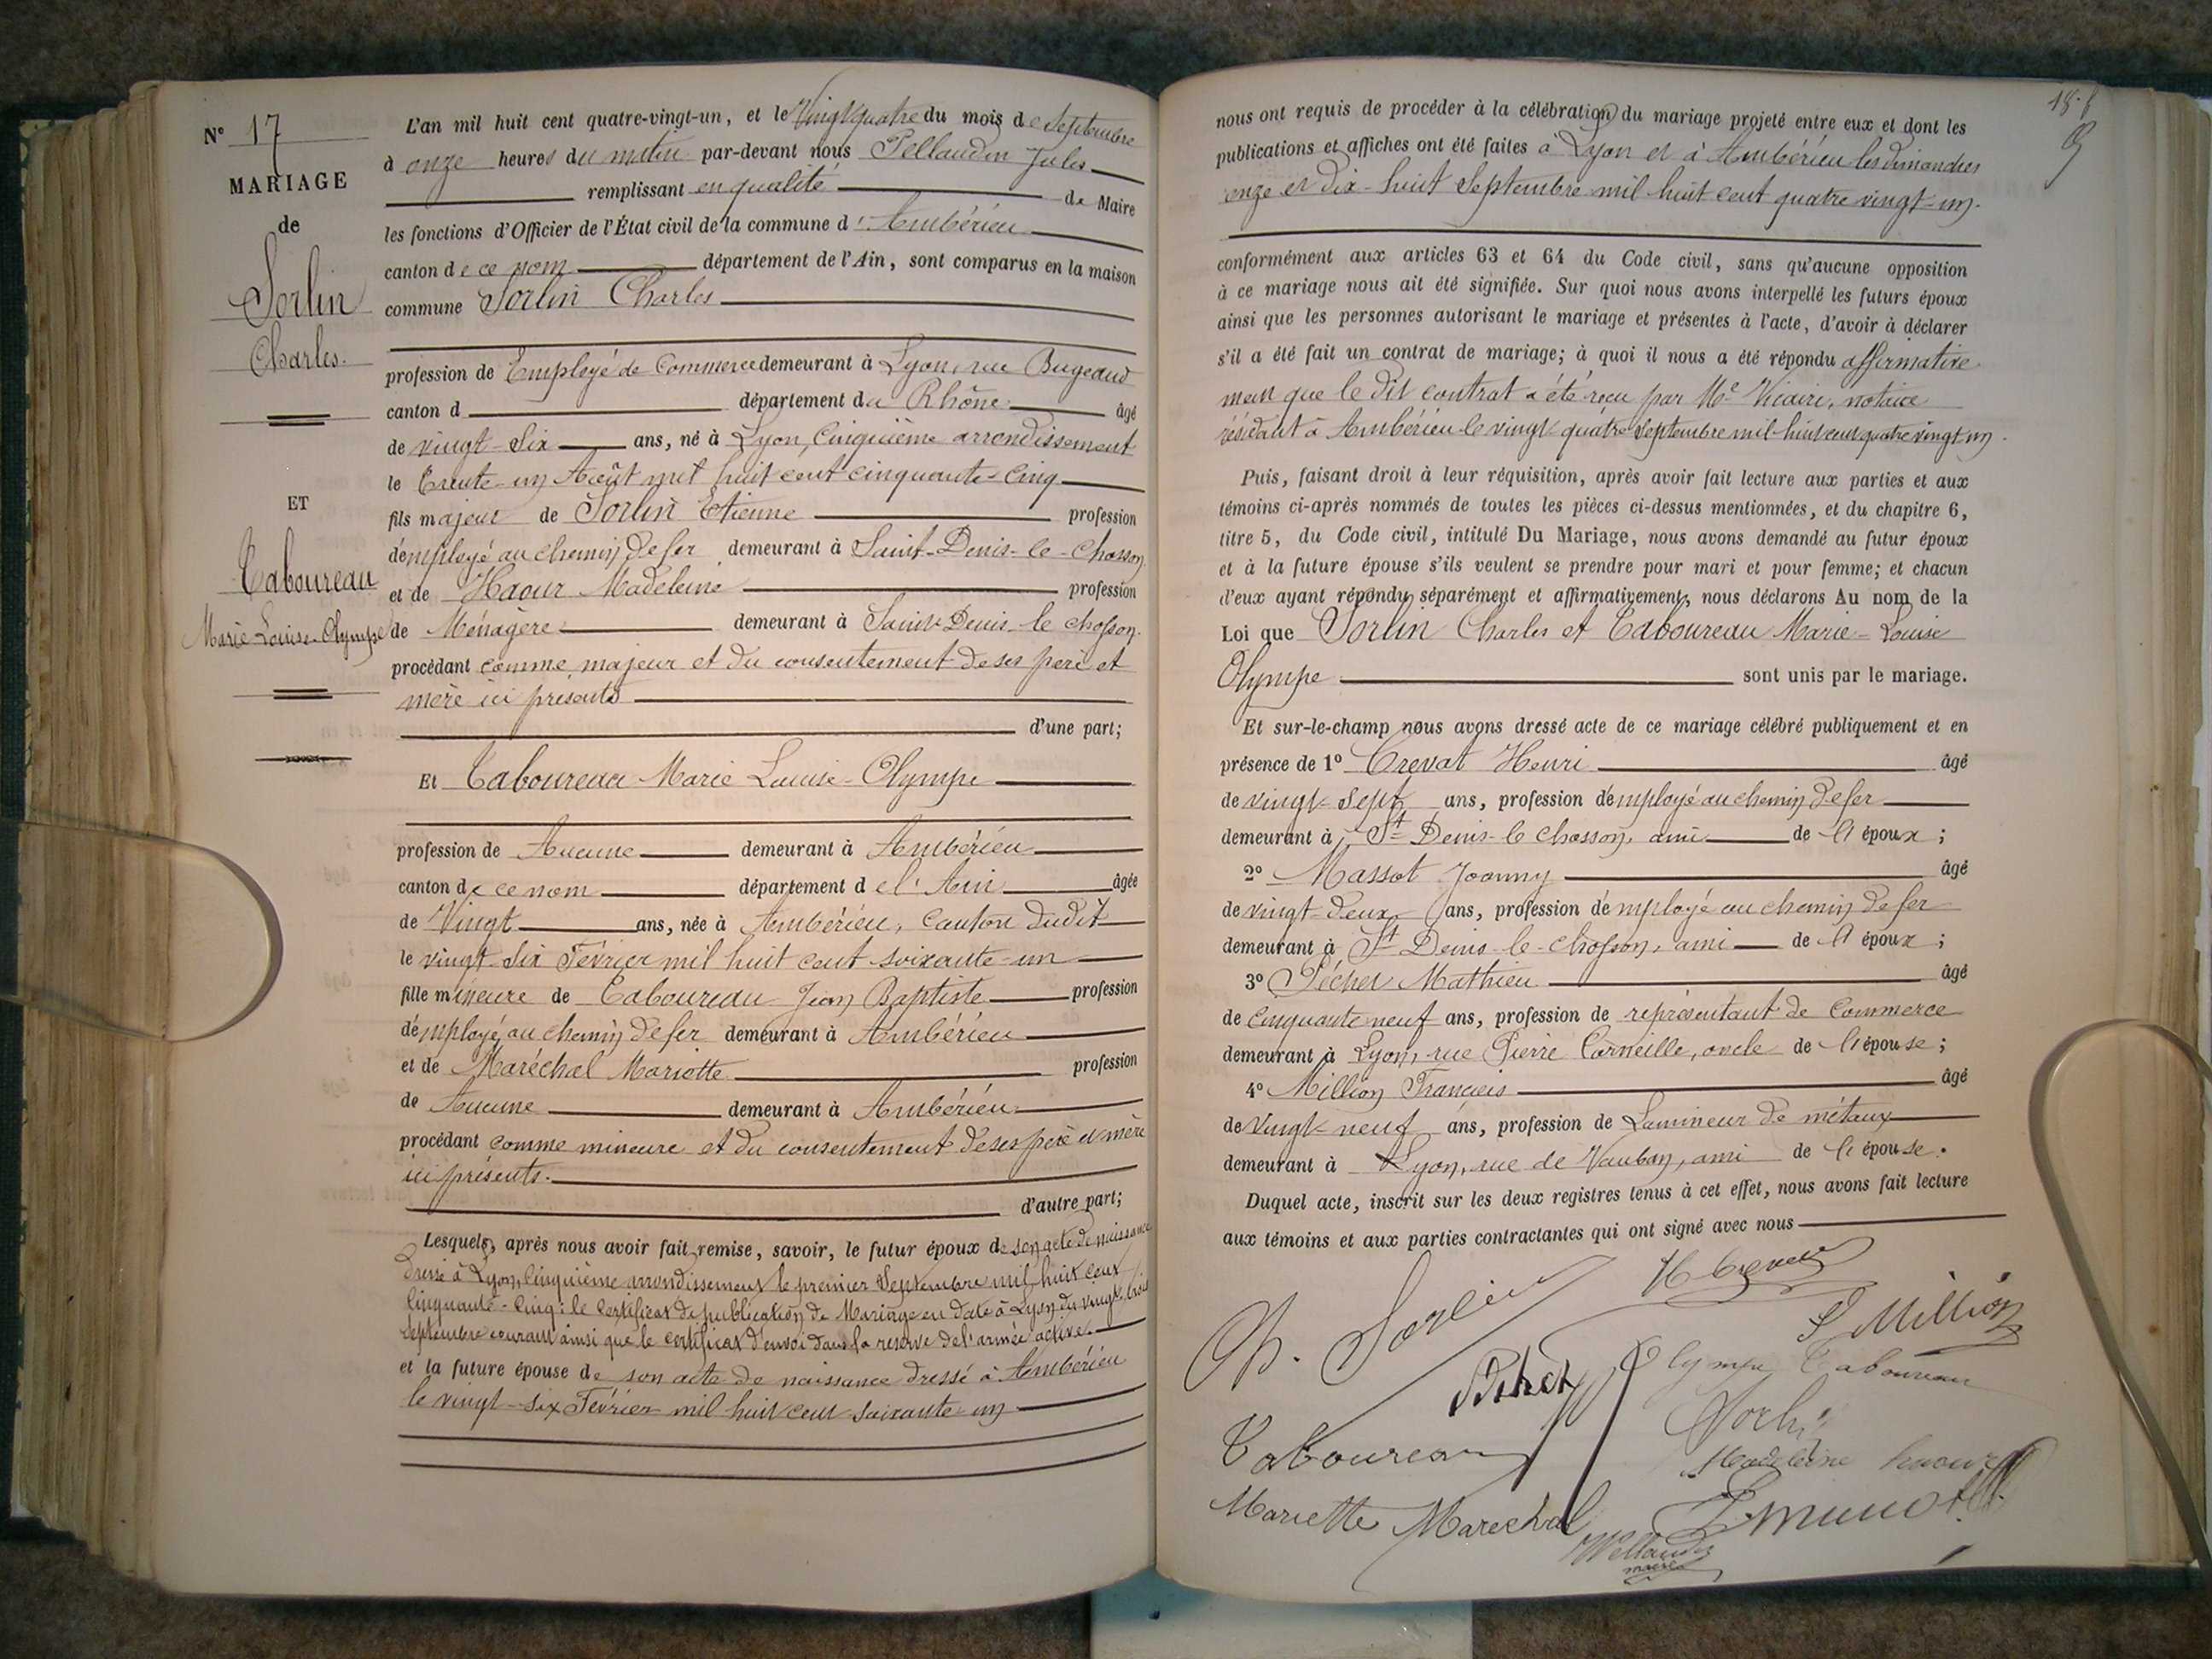 N° 17
MARIAGE
de
Sorlin
Charles.
ET
Taboureau
Marie Louise Olympe
L'an mil huit cent quatre-vingt-un, et le Vingt quatre du mois de Septembre
à onze heures du matin par-devant nous Pellaudin Jules
remplissant en qualité de Maire
les fonctions d'Officier de l'État civil de la commune d'Ambérieu
canton de ce nom département de l'Ain, sont comparus en la maison
commune Sorlin Charles
profession de Employé de Commerce demeurant à Lyon, rue Bugeaud
canton d département du Rhône âgé
de vingt-six ans, né à Lyon, Cinquième arrondissement
le Trente-un Août mil huit cent cinquante-cinq
fils majeur de Sorlin Etienne profession
d'employé au chemin de fer demeurant à Saint-Denis-le-Chosson
et de Haour Madeleine profession
de Ménagère demeurant à Saint Denis le chosson.
procédant comme majeur et du consentement de ses père et
mère ici présents
d'une part;
Et Taboureau Marie Louise-Olympe
profession de Aucune demeurant à Ambérieu
canton de ce nom département de l'Ain âgée
de Vingt ans, née à Ambérieu, Canton dudit
le vingt-six Février mil huit cent soixante-un
fille mineure de Taboureau Jean Baptiste profession
d'employé au chemin de fer demeurant à Ambérieu
et de Maréchal Mariette profession
de Aucune demeurant à Ambérieu
procédant comme mineure et du consentement de ses père et mère
ici présents.
d'autre part;
Lesquels, après nous avoir fait remise, savoir, le futur époux de son acte de naissance
dressé à Lyon, Cinquième arrondissement le premier Septembre mil huit cent
Cinquante-Cinq: le Certificat de publication de Mariage en date à Lyon du vingt trois
Septembre courant ainsi que le certificat d'envoi dans la réserve de l'armée active.
et la future épouse de son acte de naissance dressé à Ambérieu
le vingt-six Février mil huit cent soixante-un
nous ont requis de procéder à la célébration du mariage projeté entre eux et dont les
publications et affiches ont été faites à Lyon et à Ambérieu les dimanches
onze et dix-huit Septembre mil huit cent quatre vingt-un.
conformément aux articles 63 et 64 du Code civil, sans qu'aucune opposition
à ce mariage nous ait été signifiée. Sur quoi nous avons interpellé les futurs époux
ainsi que les personnes autorisant le mariage et présentes à l'acte, d'avoir à déclarer
s'il a été fait un contrat de mariage; à quoi il nous a été répondu affirmative
ment que le dit contrat a été reçu par Me Vicaire, notaire
résidant à Ambérieu le vingt-quatre Septembre mil-huit cent quatre vingt un.
Puis, faisant droit à leur réquisition, après avoir fait lecture aux parties et aux
témoins ci-après nommés de toutes les pièces ci-dessus mentionnées, et du chapitre 6,
titre 5, du Code civil, intitulé Du Mariage, nous avons demandé au futur époux
et à la future épouse s'ils veulent se prendre pour mari et pour femme; et chacun
d'eux ayant répondu séparément et affirmativement, nous déclarons Au nom de la
Loi que Sorlin Charles et Taboureau Marie-Louise
Olympe sont unis par le mariage.
Et sur-le-champ nous avons dressé acte de ce mariage célébré publiquement et en
présence de 1° Crevat Henri âgé
de vingt-sept ans, profession d'employé au chemin de fer
demeurant à St Denis-le chosson, ami de l'époux;
2° Massot Joanny âgé
de vingt-deux ans, profession d'employé au chemin de fer
demeurant à St Denis-le-chosson, ami de l'époux;
3° Péchet Mathieu âgé
de Cinquante neuf ans, profession de représentant de Commerce
demeurant à Lyon, rue Pierre Corneille, oncle de l'épouse;
4° Million François âgé
de Vingt-neuf ans, profession de Lamineur de métaux
demeurant à Lyon, rue de Vauban, ami de l'épouse.
Duquel acte, inscrit sur les deux registres tenus à cet effet, nous avons fait lecture
aux témoins et aux parties contractantes qui ont signé avec nous
Ch. Sorlin
H Crevat
F Million
Olympe Taboureau
Taboureau
Sorlin
Madeleine haour
Mariette Marechal
Pellaudin
maire